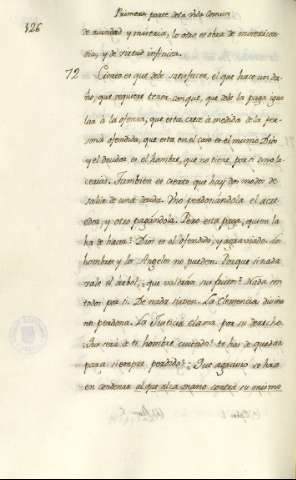 Primera parte de la vida comun
126
de piedad y miseria; lo otro es obra de misericor-
dia, y de virtud infinita.
72 Cierto es que debe satisfacer, el que hace un da-
ño, que requiere tener con que, que debe la paga igua-
lar à la ofensa, que esta crece à medida de la per-
sona ofendida, que esta en el caso es el mismo Dios
y el deudor es el hombre, que no tiene, por
Tambien es cierto que hay dos modos de
salir de una deuda. Uno perdonandola el acre-
edor, y otro pagandola. Pero esta paga, quien la
ha de hacer? Dios es el ofendido, y agraviado. Los
hombres y los Angeles no pueden. Porque si nada
vale el arbol, que valdràn sus frutos? Nada con
todos por si. De nada sirven. La Clemencia divina
no perdona. La Justicia clama por su derecho.
Que serà de ti hombre cuitado? te has de quedar
para siempre perdido? Que agravio se hace
en condenar al que alza mano contra su mismo